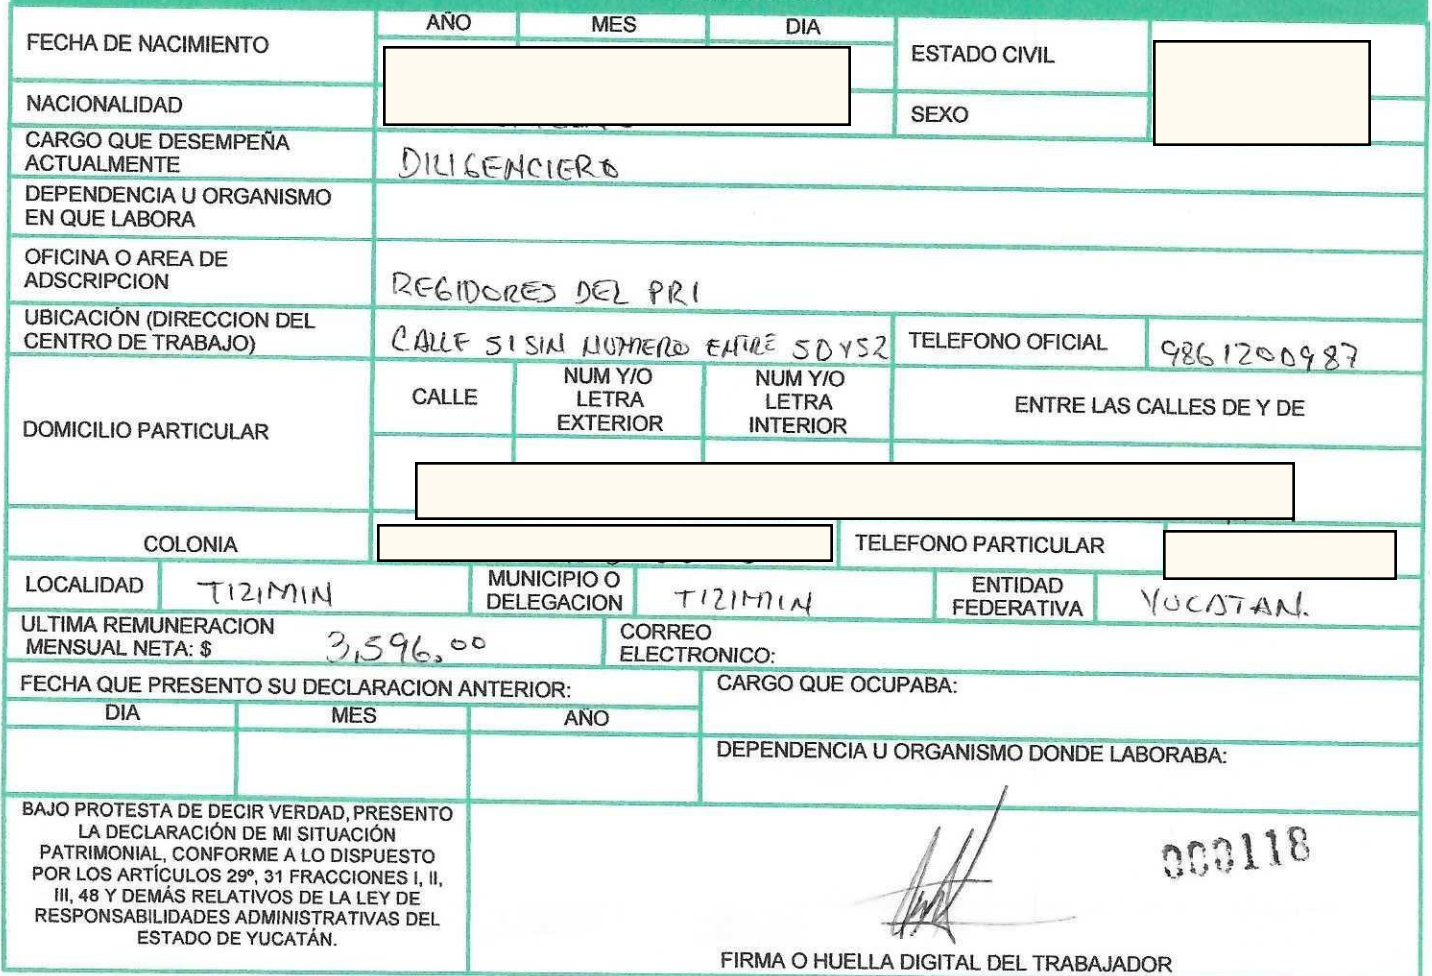 AÑO MES DIA
FECHA DE NACIMIENTO
ESTADO CIVIL
NACIONALIDAD
SEXO
CARGO QUE DESEMPEÑA
ACTUALMENTE
DILIGENCIERO
DEPENDENCIA U ORGANISMO
EN QUE LABORA
OFICINA O AREA DE
ADSCRIPCION
REGIDORES DEL PRI
UBICACIÓN (DIRECCION DEL
CENTRO DE TRABAJO)
CALLE 51 SIN NUMERO ENTRE 50 Y 52
TELEFONO OFICIAL
9861200987
DOMICILIO PARTICULAR
CALLE
NUM Y/O
LETRA
EXTERIOR
NUM Y/O
LETRA
INTERIOR
ENTRE LAS CALLES DE Y DE
COLONIA
TELEFONO PARTICULAR
LOCALIDAD
TIZIMIN
MUNICIPIO O
DELEGACION
TIZIMIN
ENTIDAD
FEDERATIVA
YUCATAN.
ULTIMA REMUNERACION
MENSUAL NETA: $
3,596.00
CORREO
ELECTRONICO:
FECHA QUE PRESENTO SU DECLARACION ANTERIOR:
DIA MES AÑO
CARGO QUE OCUPABA:
DEPENDENCIA U ORGANISMO DONDE LABORABA:
BAJO PROTESTA DE DECIR VERDAD, PRESENTO
LA DECLARACIÓN DE MI SITUACIÓN
PATRIMONIAL, CONFORME A LO DISPUESTO
POR LOS ARTÍCULOS 29º, 31 FRACCIONES I, II,
III, 48 Y DEMÁS RELATIVOS DE LA LEY DE
RESPONSABILIDADES ADMINISTRATIVAS DEL
ESTADO DE YUCATÁN.
000118
FIRMA O HUELLA DIGITAL DEL TRABAJADOR